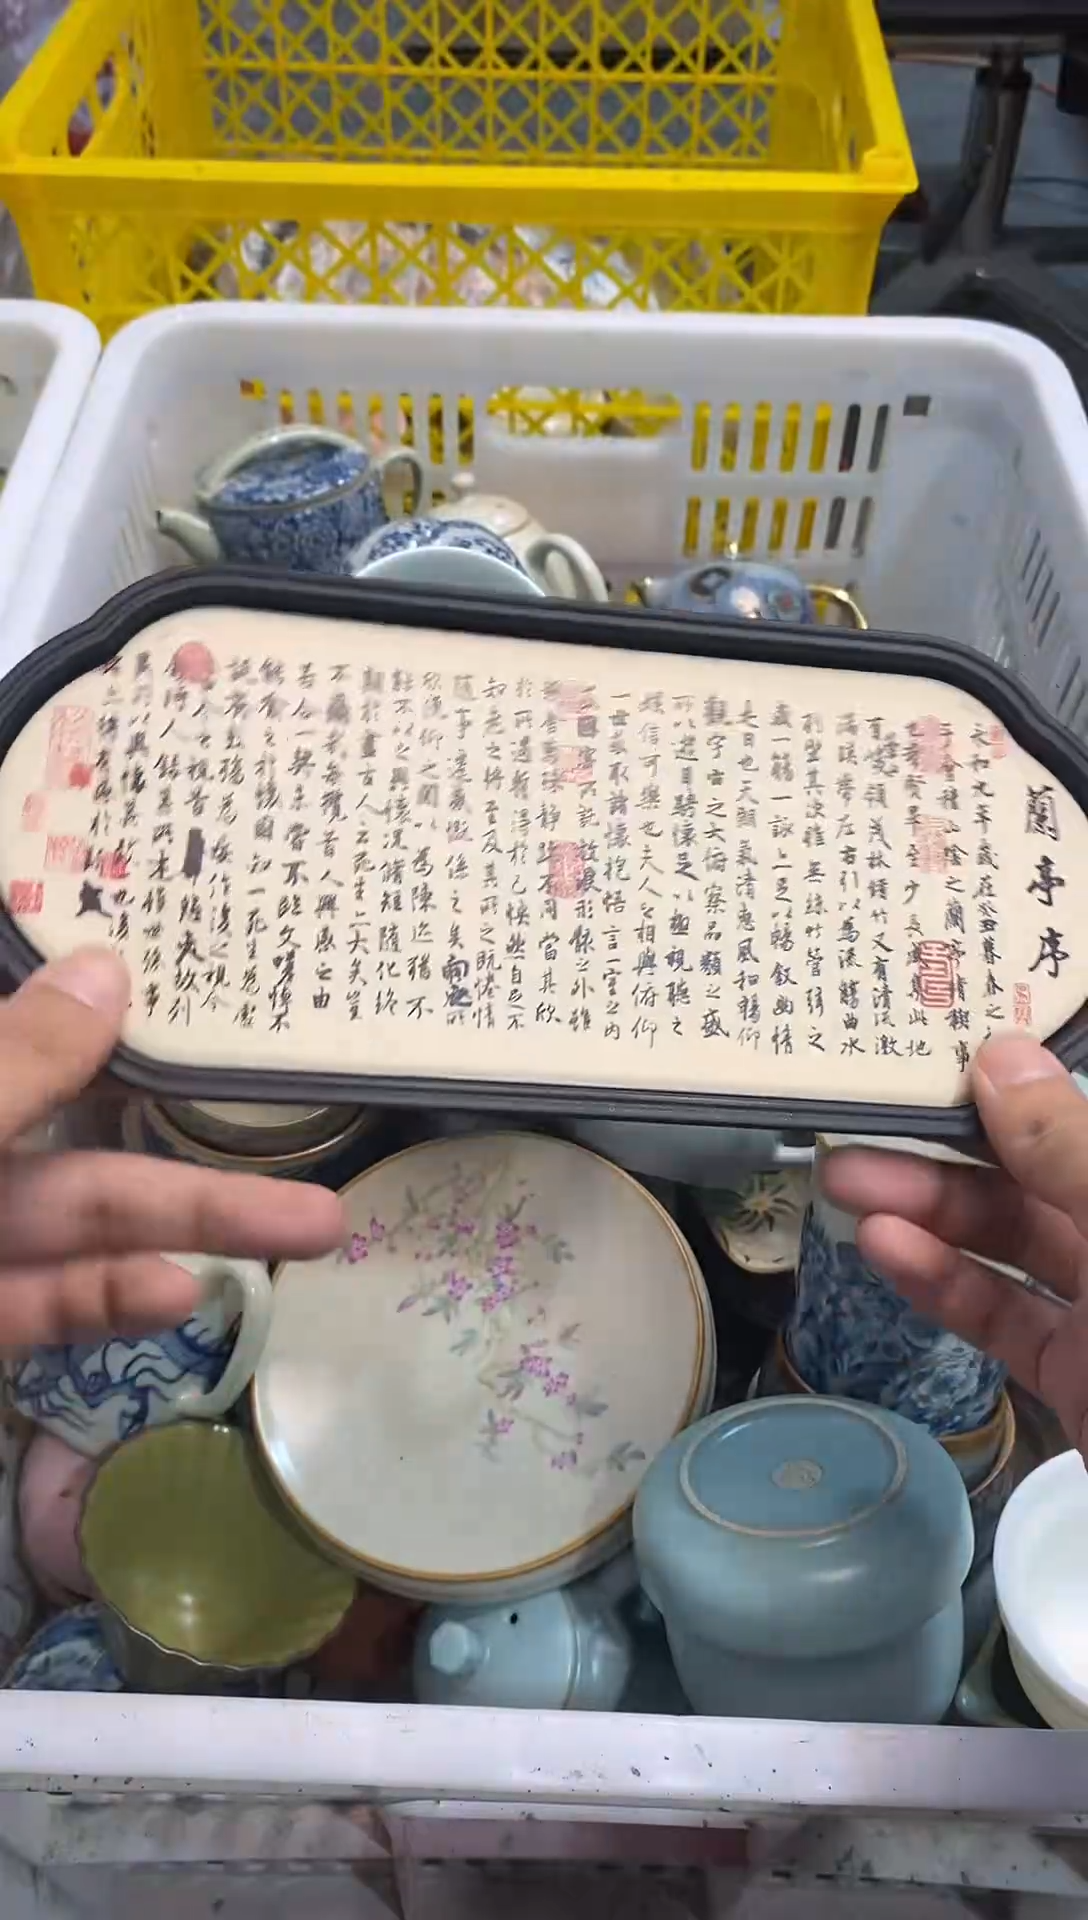 蘭亭序
永和九年歲在癸丑暮春之
于會稽山陰之蘭亭脩稧事
也羣賢畢至少長咸集此地
有崇山峻領茂林脩竹又有清流激
湍暎帶左右引以為流觴曲水
列坐其次雖無絲竹管弦之
盛一觴一詠亦足以暢敘幽情
是日也天朗氣清惠風和暢仰
觀宇宙之大俯察品類之盛
所以遊目騁懷足以極視聽之
娛信可樂也夫人之相與俯仰
一世或取諸懷抱悟言一室之內
或因寄所託放浪形骸之外雖
趣舍萬殊靜躁不同當其欣
於所遇暫得於己怏然自足不
知老之將至及其所之既惓情
隨事遷感慨係之矣向之所
欣俛仰之間以為陳迹猶不
能不以之興懷況脩短隨化終
期於盡古人云死生亦大矣豈
不痛哉每攬昔人興感之由
若合一契未嘗不臨文嗟悼不
能喻之於懷固知一死生為虛
誕齊彭殤為妄作後之視今
亦由今之視昔悲夫故列
敘時人錄其所述雖世殊事
異所以興懷其致一也後
者亦將有感於斯文